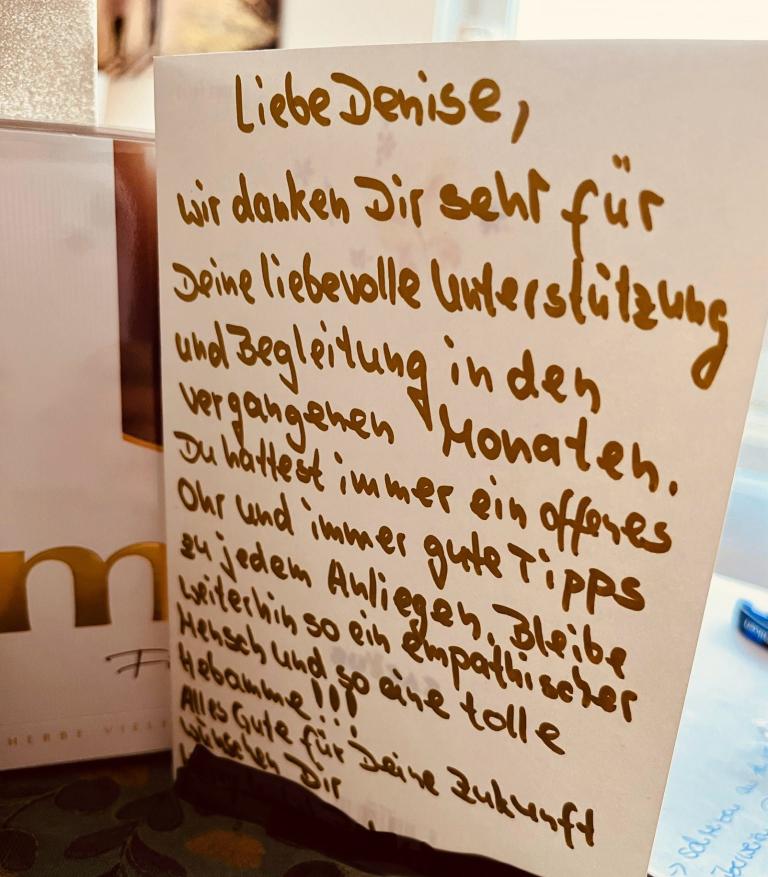 Liebe Denise,
wir danken Dir sehr für
Deine liebevolle Unterstützung
und Begleitung in den
vergangenen Monaten.
Du hattest immer ein offenes
Ohr und immer gute Tipps
zu jedem Anliegen. Bleibe
weiterhin so ein empathischer
Mensch und so eine tolle
Hebamme!!!
Alles Gute für Deine Zukunft
wünschen Dir
m
HERBE VIELE